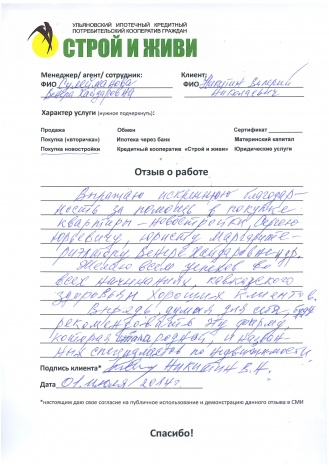 УЛЬЯНОВСКИЙ ИПОТЕЧНЫЙ КРЕДИТНЫЙ
ПОТРЕБИТЕЛЬСКИЙ КООПЕРАТИВ ГРАЖДАН
СТРОЙ И ЖИВИ
Менеджер/ агент/ сотрудник: Клиент:
ФИО Сулейманова ФИО Никитин Валерий
Венера Хайдаровна Николаевич
Характер услуги (нужное подчеркнуть):
Продажа Обмен Сертификат
Покупка (вторичка) Ипотека через банк Материнский капитал
Покупка новостройки Кредитный кооператив «Строй и живи» Юридические услуги
Отзыв о работе
Выражаю искреннюю благодар-
ность за помощь в покупке
квартиры - новостройки, Сергею
Юрьевичу, юристу Маргарите
риэлтору Венере Хайдаровне
Желаю всем успехов во
всех начинаниях, кавказского
здоровья хороших клиентов.
Впредь, думаю для себя, буду
рекомендовать эту фирму,
которая стала родной,
специалистов по недвижимости
Подпись клиента* Никитин В.Н.
Дата 01 июля / 2014г
*настоящим даю свое согласие на публичное использование и демонстрацию данного отзыва в СМИ
Спасибо!